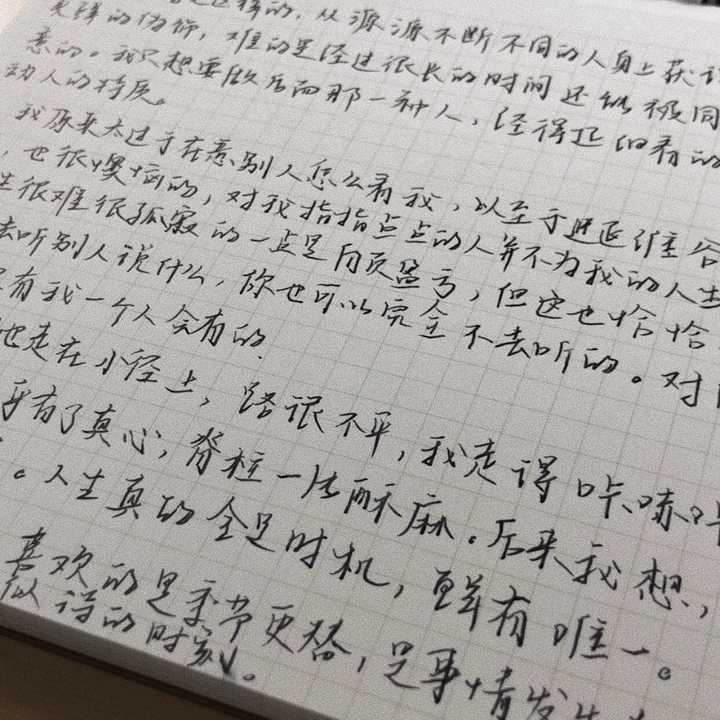 的，从源源不断不同的人身上获
的伪饰，难的是经过很长的时间还能被同
意的。我只想要做后面那一种人，经得起细看的
动人的特质。
我原来太过于在意别人怎么看我，以至于
，也很懊恼的，对我指指点点的人并不为我的人生
很难很孤寂的一点是自负盈亏，但这也恰恰
去听别人说什么，你也可以完全不去听的。对
有我一个人会有的
地走在小径上，路很不平，我走得咔嚓
有了真心，脊柱一阵酥麻。后来我想，
。人生真的全是时机，鲜有唯一。
喜欢的是季节更替，是事情发生
诗的时刻。